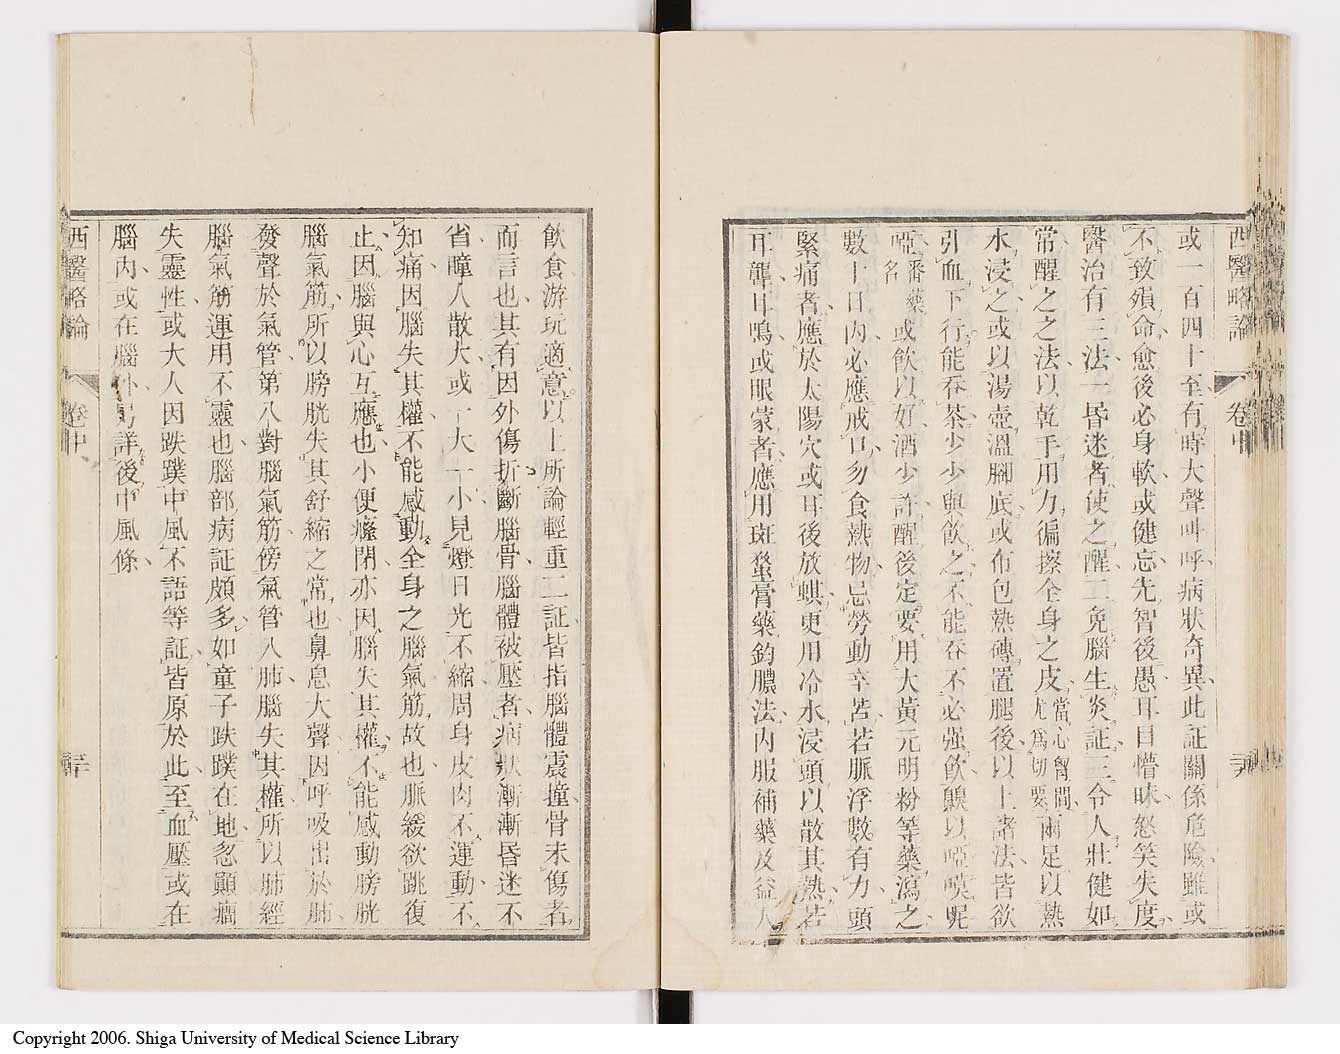 西醫略論
卷中
或一百四十至有時大聲叫呼病狀奇異此証關係危險雖或
不致殞命愈後必身軟或健忘先智後愚耳目懵昧怒笑失度
醫治有三法一昏迷者使之醒二免腦生炎証三令人壯健如
常醒之之法以乾手用力徧擦全身之皮當心胷間尤爲切要兩足以熱
水浸之或以湯壺溫腳底或布包熱磚置腿後以上諸法皆欲
引血下行能吞茶少少與飲之不能吞不必强飲鼻以啞嘆呢
啞番藥名或飲以好酒少許醒後定要用大黃元明粉等藥瀉之
數十日內必應戒口勿食熱物忌勞動辛苦若脈浮數有力頭
緊痛者應於太陽穴或耳後放蜞更用冷水浸頭以散其熱若
耳聾耳鳴或眼蒙者應用斑蝥膏藥釣膿法內服補藥及益人
飲食游玩適意以上所論輕重二証皆指腦體震撞骨未傷者
而言也其有因外傷折斷腦骨腦體被壓者病狀漸漸昏迷不
省瞳人散大或一大一小見燈日光不縮周身皮肉不運動不
知痛因腦失其權不能感動全身之腦氣筋故也脈緩欲跳復
止因腦與心互應也小便癃閉亦因腦失其權不能感動膀胱
腦氣筋所以膀胱失其舒縮之常也鼻息大聲因呼吸出於肺
發聲於氣管第八對腦氣筋傍氣管入肺腦失其權所以肺經
腦氣筋運用不靈也腦部病証頗多如童子跌蹼在地忽顚癎
失靈性或大人因跌蹼中風不語等証皆原於此至血壓或在
腦內或在腦外另詳後中風條
西醫略論
卷中